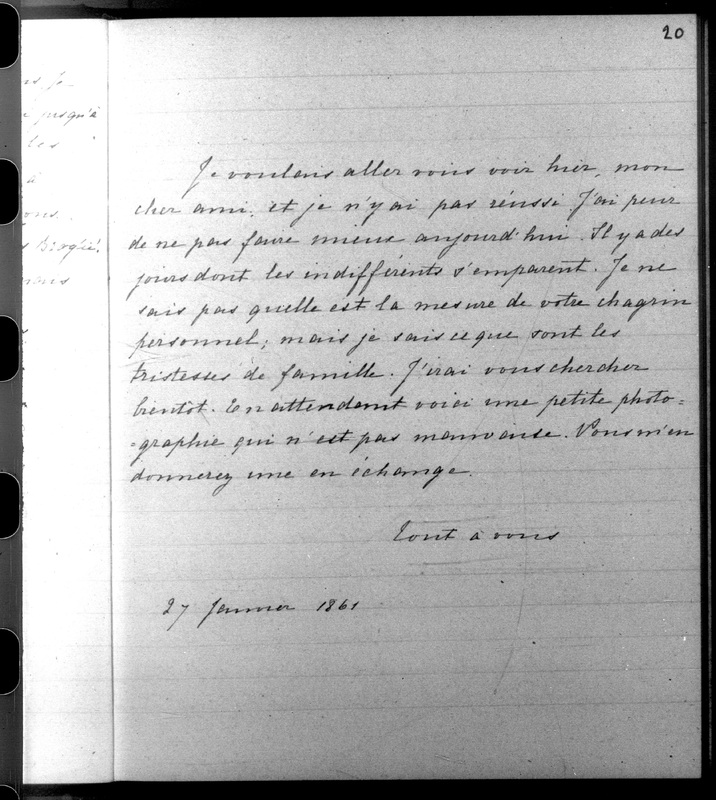 20
Je voulais aller vous voir hier, mon
cher ami, et je n'y ai pas réussi J'ai peur
de ne pas faire mieux aujourd'hui. Il y a des
jours dont les indifférents s'emparent. Je ne
sais pas quelle est la mesure de votre chagrin
personnel; mais je sais ce que sont les
tristesses de famille. J'irai vous chercher
bientôt. En attendant voici une petite photo=
=graphie qui n'est pas mauvaise. Vous m'en
donnerez une en échange.
Tout à vous
27 Janvier 1861
jusqu'à
les
à